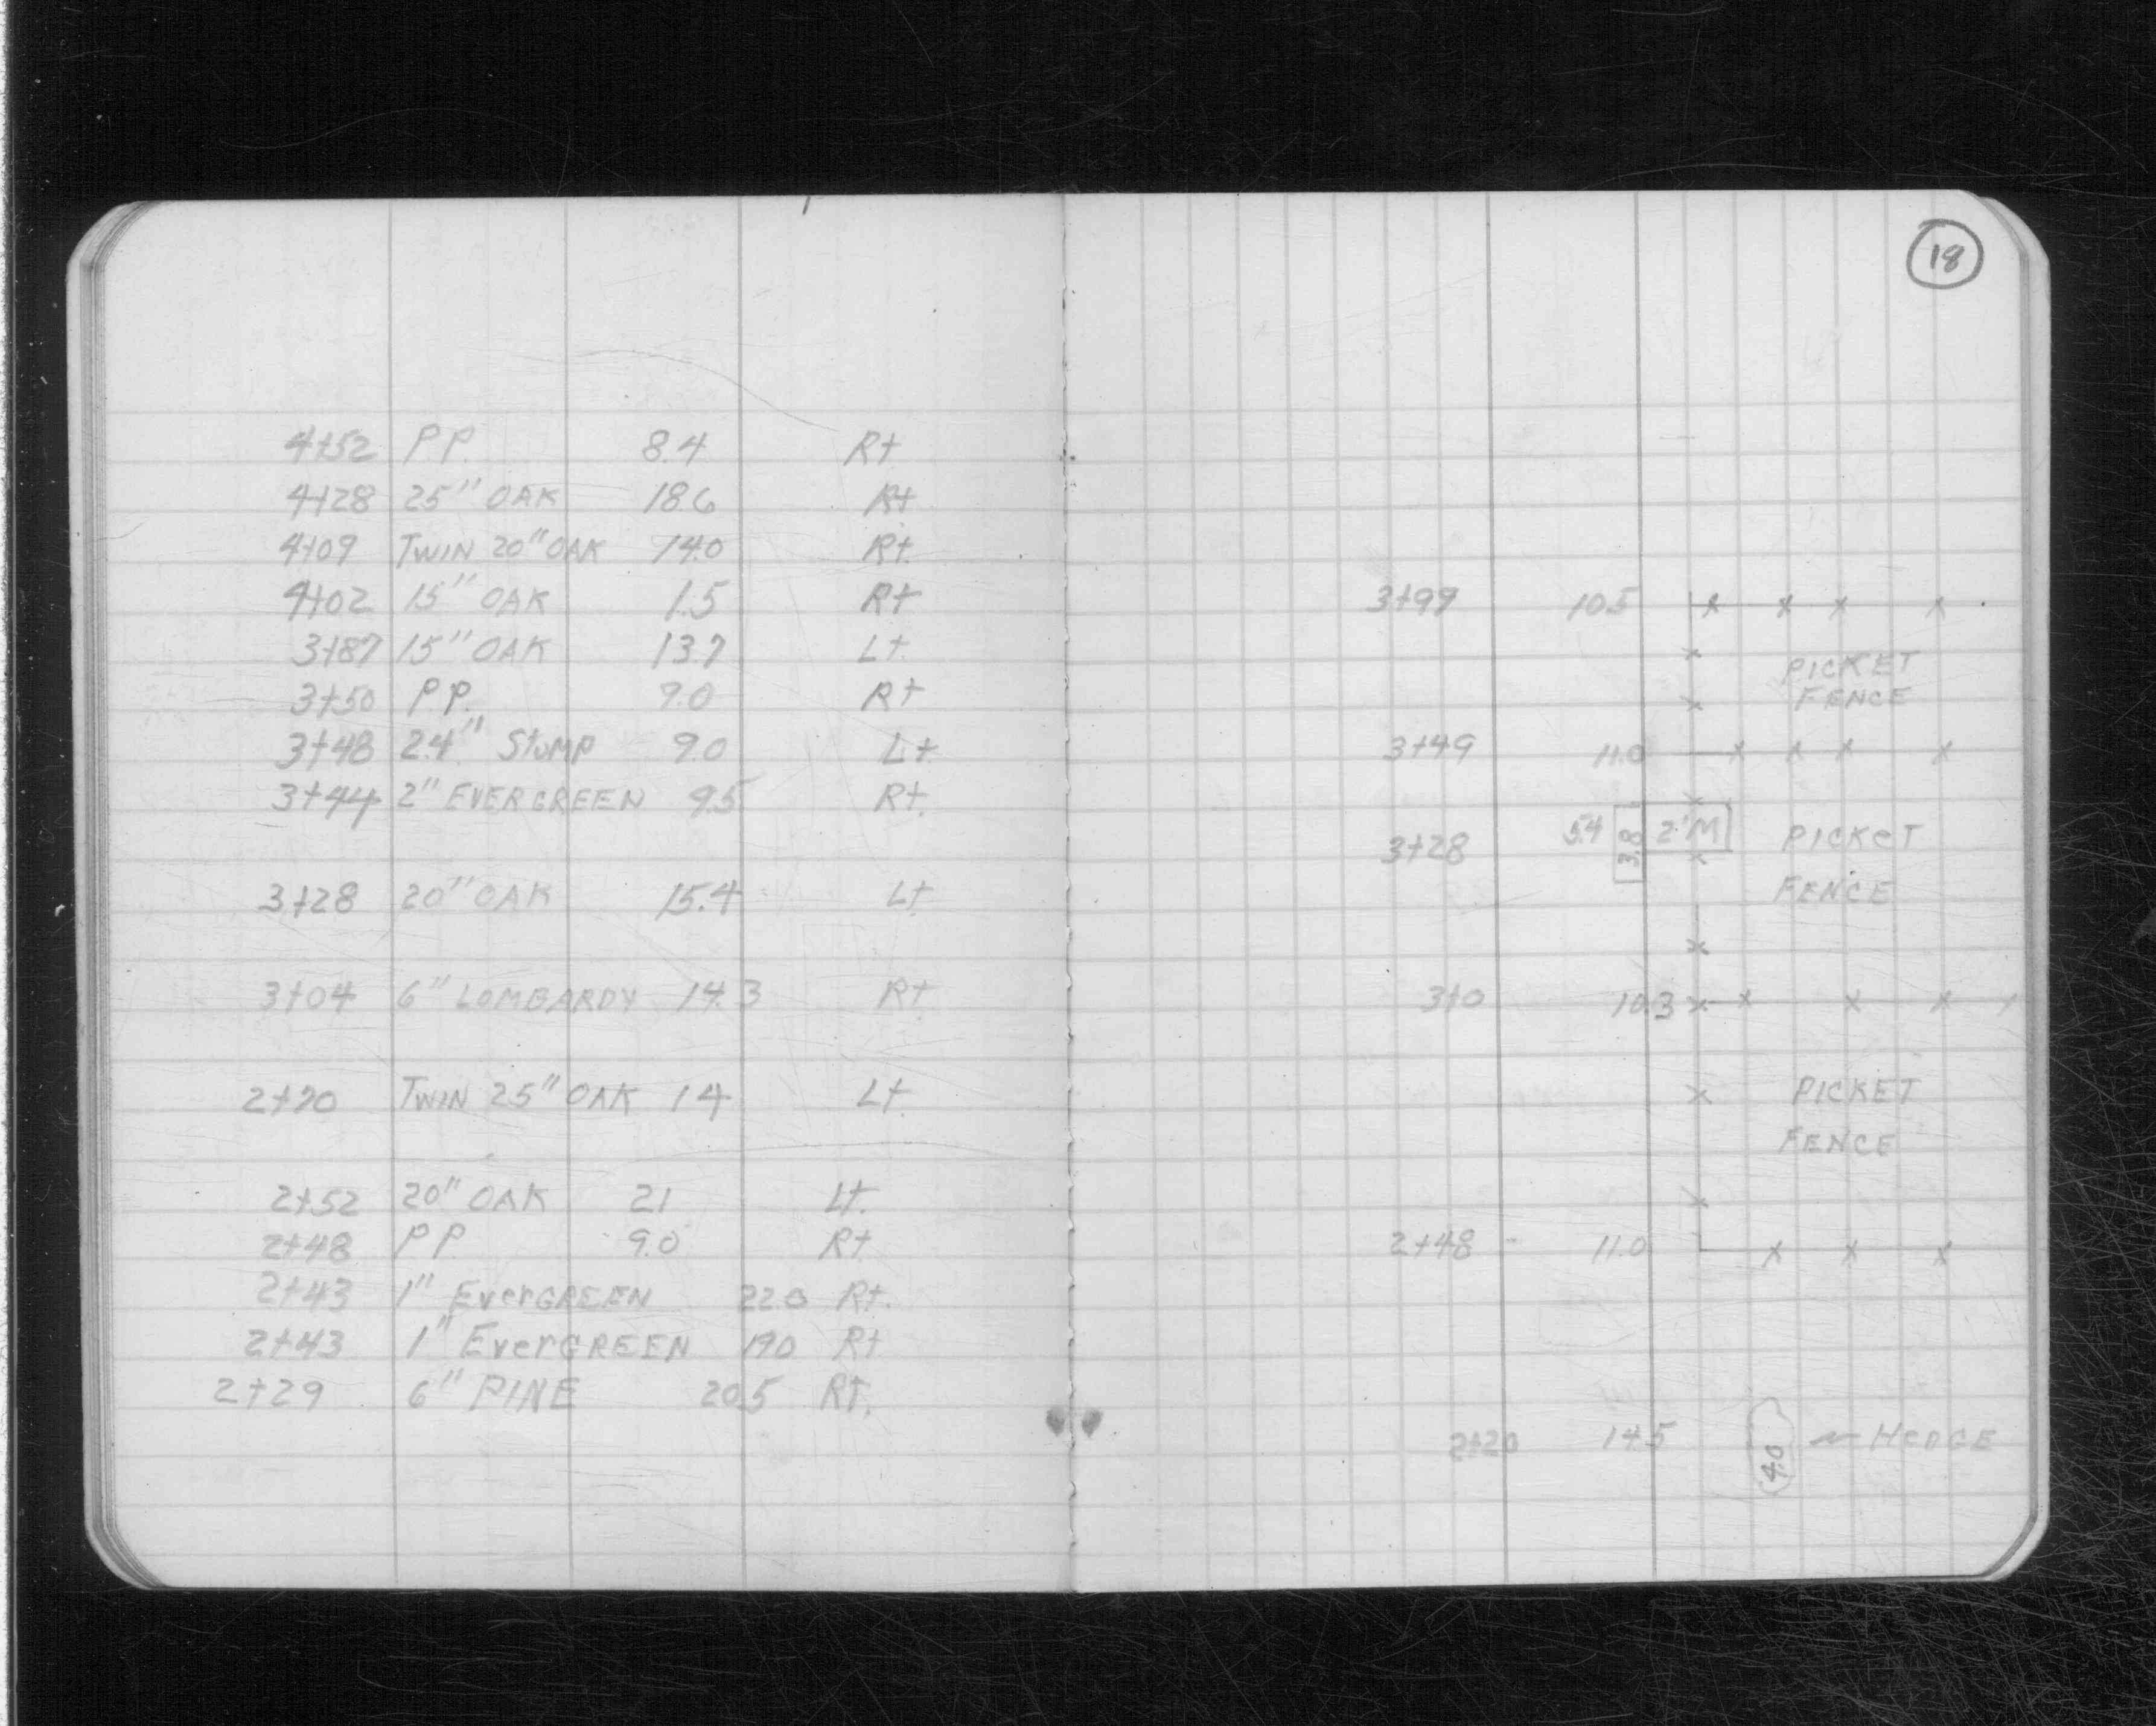 18
4+52 PP. 8.4 Rt
4+28 25" OAK 18.6 Rt
4+09 TWIN 20" OAK 14.0 Rt.
4+02 15" OAK 1.5 Rt
3+87 15" OAK 13.7 Lt.
3+50 PP. 9.0 Rt
3+48 24" Stump 9.0 Lt
3+44 2" EVERGREEN 9.5 Rt.
3+28 20" OAK 15.4 Lt
3+04 6" LOMBARDY 14.3 Rt
2+70 TWIN 25" OAK 14 Lt.
2+52 20" OAK 21 Lt.
2+48 PP 9.0 Rt
2+43 1" EverGREEN 22.0 Rt.
2+43 1" EverGREEN 19.0 Rt
2+29 6" PINE 20.5 Rt.
3+99 10.5
PICKET
FENCE
3+49 11.0
3+28 5.4 3.8 2'M PICKeT
FENCE
3+0 10.3
PICKET
FENCE
2+48 - 11.0
2+20 14.5 4.0 HEDGE